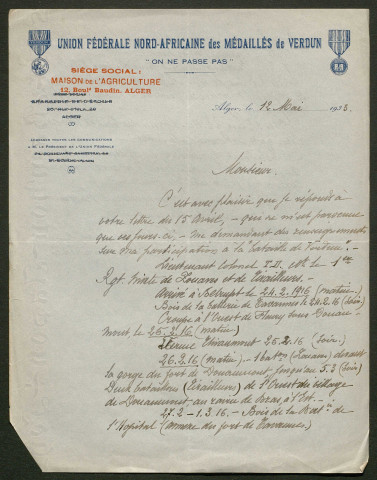 UNION FÉDÉRALE NORD-AFRICAINE des MÉDAILLÉS de VERDUN
" ON NE PASSE PAS "
SIÈGE SOCIAL :
MAISON de L'AGRICULTURE
12, Boulᵈ Baudin, ALGER
ALGER
ADRESSER TOUTES LES COMMUNICATIONS
A M. LE PRÉSIDENT DE L'UNION FÉDÉRALE
Alger, le 12 Mai 1938.
Monsieur.
C'est avec plaisir que je réponds à
votre lettre du 15 Avril, - qui ne m'est parvenue
que ces jours-ci, - me demandant des renseignements
sur ma participation à la "bataille de Verdun".-
Lieutenant Colonel
Rgt Mixte de Zouaves et de Tirailleurs.-
Arrivé à Belrupt le 24.2.1916 (matin).
Bois de la batterie de Tavannes le 24.2.16 (soir)
Croupe à l'Ouest de Fleury sous Douau-
mont, le 25.2.16 (matin)
Ferme Thiaumont 25.2.16 (soir)
26.2.16 (matin) - 1 batᵒⁿ (Zouaves) devant
la gorge du fort de Douaumont jusqu'au 5.3 (soir)
Deux bataillons (Tirailleurs) de l'Ouest du village
de Douaumont, au ravin de Bras, à l'Est.-
27.2 - 1.3.16 - Bois de la
l'Hôpital (arrière du fort de Tavannes).